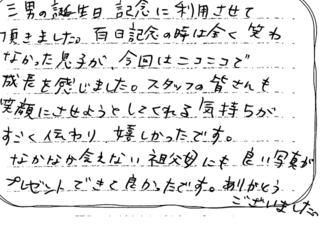 三男の誕生日記念に利用させて
頂きました。百日記念の時は全く笑わ
なかった息子が、今回はニコニコで
成長を感じました。スタッフの皆さんも
笑顔にさせようとしてくれる気持ちが
すごく伝わり、嬉しかったです。
なかなか会えない祖父母にも良い写真が
プレゼントできて良かったです。ありがとう
ございました。